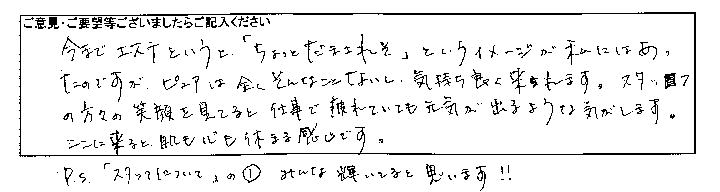 ご意見・ご要望等ございましたらご記入ください
今までエステというと、「ちょっとだまされそ」というイメージが私にはあっ
たのですが、ピュアは全くそんなことないし、気持ち良く来られます。スタッフ
の方々の笑顔を見てると仕事で疲れていても元気が出るような気がします。
ここに来ると肌も心も休まる感じです。
P.S. 「スタッフについて」の① みんな輝いてると思います!!